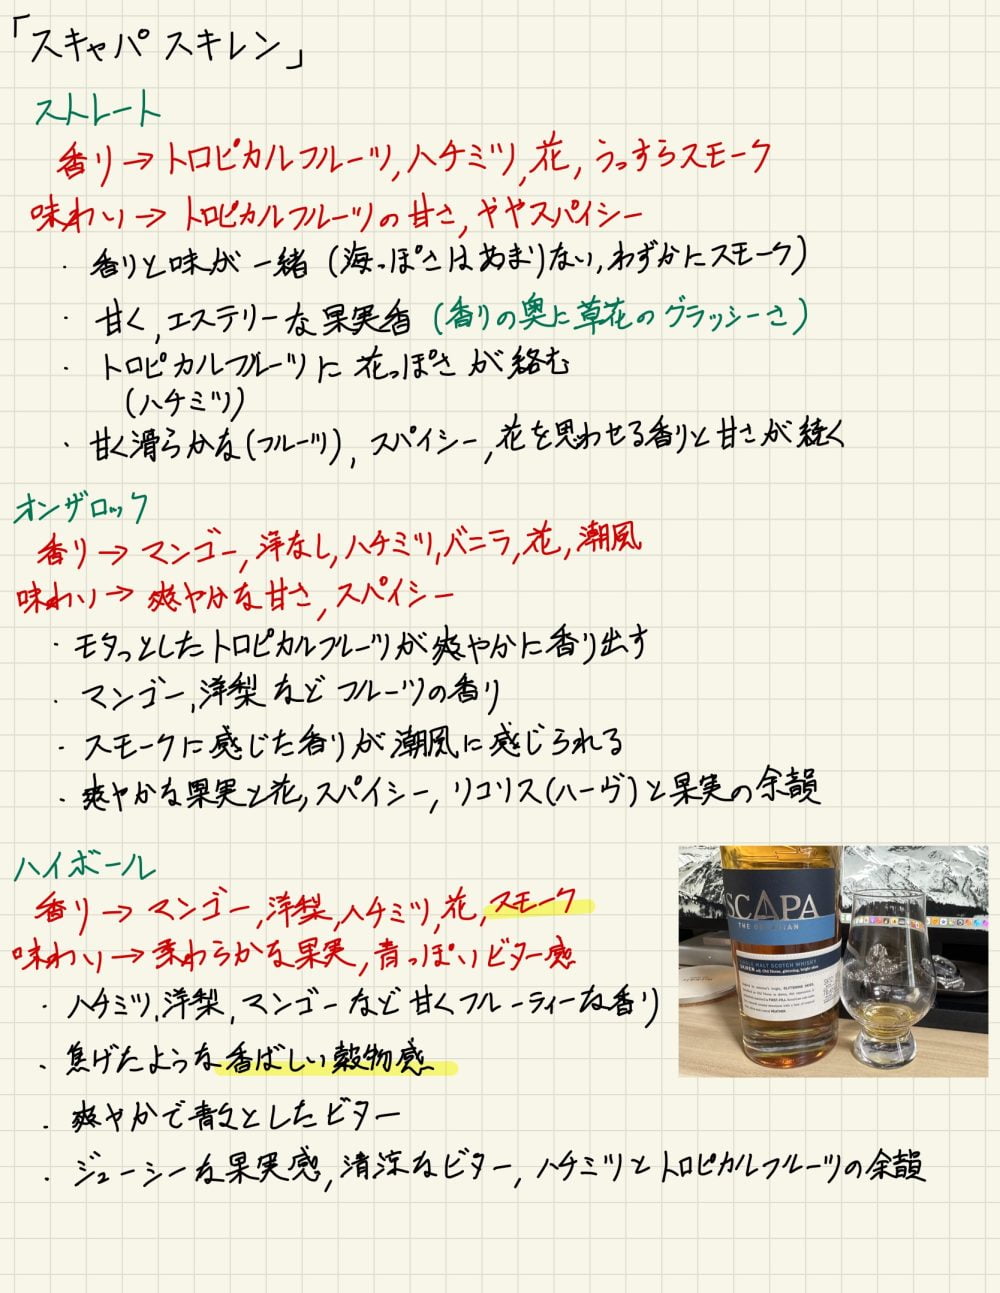 「スキャパ スキレン」
ストレート
香り→トロピカルフルーツ,ハチミツ,花,うっすらスモーク
味わい→トロピカルフルーツの甘さ,ややスパイシー
・香りと味が一緒(海っぽさはあまりない,わずかにスモーク)
・甘く,エステリーな果実香(香りの奥に草花のグラッシーさ)
・トロピカルフルーツに花っぽさが絡む
(ハチミツ)
・甘く滑らかな(フルーツ),スパイシー,花を思わせる香りと甘さが続く
オンザロック
香り→マンゴー,洋なし,ハチミツ,バニラ,花,潮風
味わい→爽やかな甘さ,スパイシー
・モタっとしたトロピカルフルーツが爽やかに香り出す
・マンゴー,洋梨などフルーツの香り
・スモークに感じた香りが潮風に感じられる
・爽やかな果実と花,スパイシー,リコリス(ハーヴ)と果実の余韻
ハイボール
香り→マンゴー,洋梨,ハチミツ,花,スモーク
味わい→柔わらかな果実,青っぽいビター感
・ハチミツ,洋梨,マンゴーなど甘くフルーティーな香り
・焦げたような香ばしい穀物感
・爽やかで青々としたビター
・ジューシーな果実感,清涼なビター,ハチミツとトロピカルフルーツの余韻
SCAPA
THE ORCADIAN
SINGLE MALT SCOTCH WHISKY
SKIREN